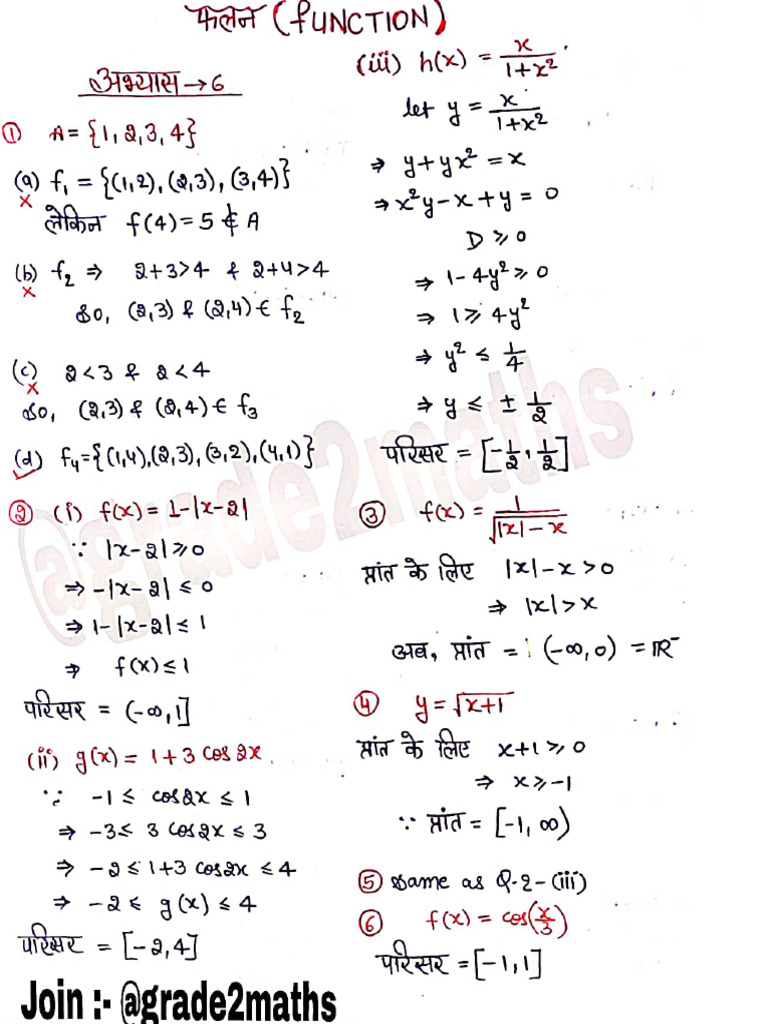 फलन (FUNCTION)
अभ्यास → 6
① A = {1, 2, 3, 4}
(a) f₁ = {(1,2), (2,3), (3,4)}
×
लेकिन f(4) = 5 ∉ A
(b) f₂ ⇒ 2+3>4 & 2+4>4
×
So, (2,3) & (2,4) ∈ f₂
(c) 2<3 & 2<4
×
So, (2,3) & (2,4) ∈ f₃
(d) f₄ = {(1,4), (2,3), (3,2), (4,1)}
② (i) f(x) = 1-|x-2|
∵ |x-2| ⩾ 0
⇒ -|x-2| ≤ 0
⇒ 1-|x-2| ≤ 1
⇒ f(x) ≤ 1
परिसर = (-∞, 1]
(ii) g(x) = 1+3 cos2x
∵ -1 ≤ cos2x ≤ 1
⇒ -3 ≤ 3 cos2x ≤ 3
⇒ -2 ≤ 1+3 cos2x ≤ 4
⇒ -2 ≤ g(x) ≤ 4
परिसर = [-2, 4]
(iii) h(x) = x/(1+x²)
let y = x/(1+x²)
⇒ y+yx² = x
⇒ x²y-x+y = 0
D ⩾ 0
⇒ 1-4y² ⩾ 0
⇒ 1 ⩾ 4y²
⇒ y² ≤ 1/4
⇒ y ≤ ± 1/2
परिसर = [-1/2, 1/2]
③ f(x) = 1/√(|x|-x)
प्रांत के लिए |x|-x > 0
⇒ |x| > x
अब, प्रांत = (-∞, 0) = IR⁻
④ y = √(x+1)
प्रांत के लिए x+1 ⩾ 0
⇒ x ⩾ -1
∵ प्रांत = [-1, ∞)
⑤ Same as Q-2-(iii)
⑥ f(x) = cos(x/3)
परिसर = [-1, 1]
@grade2maths
Join :- @grade2maths